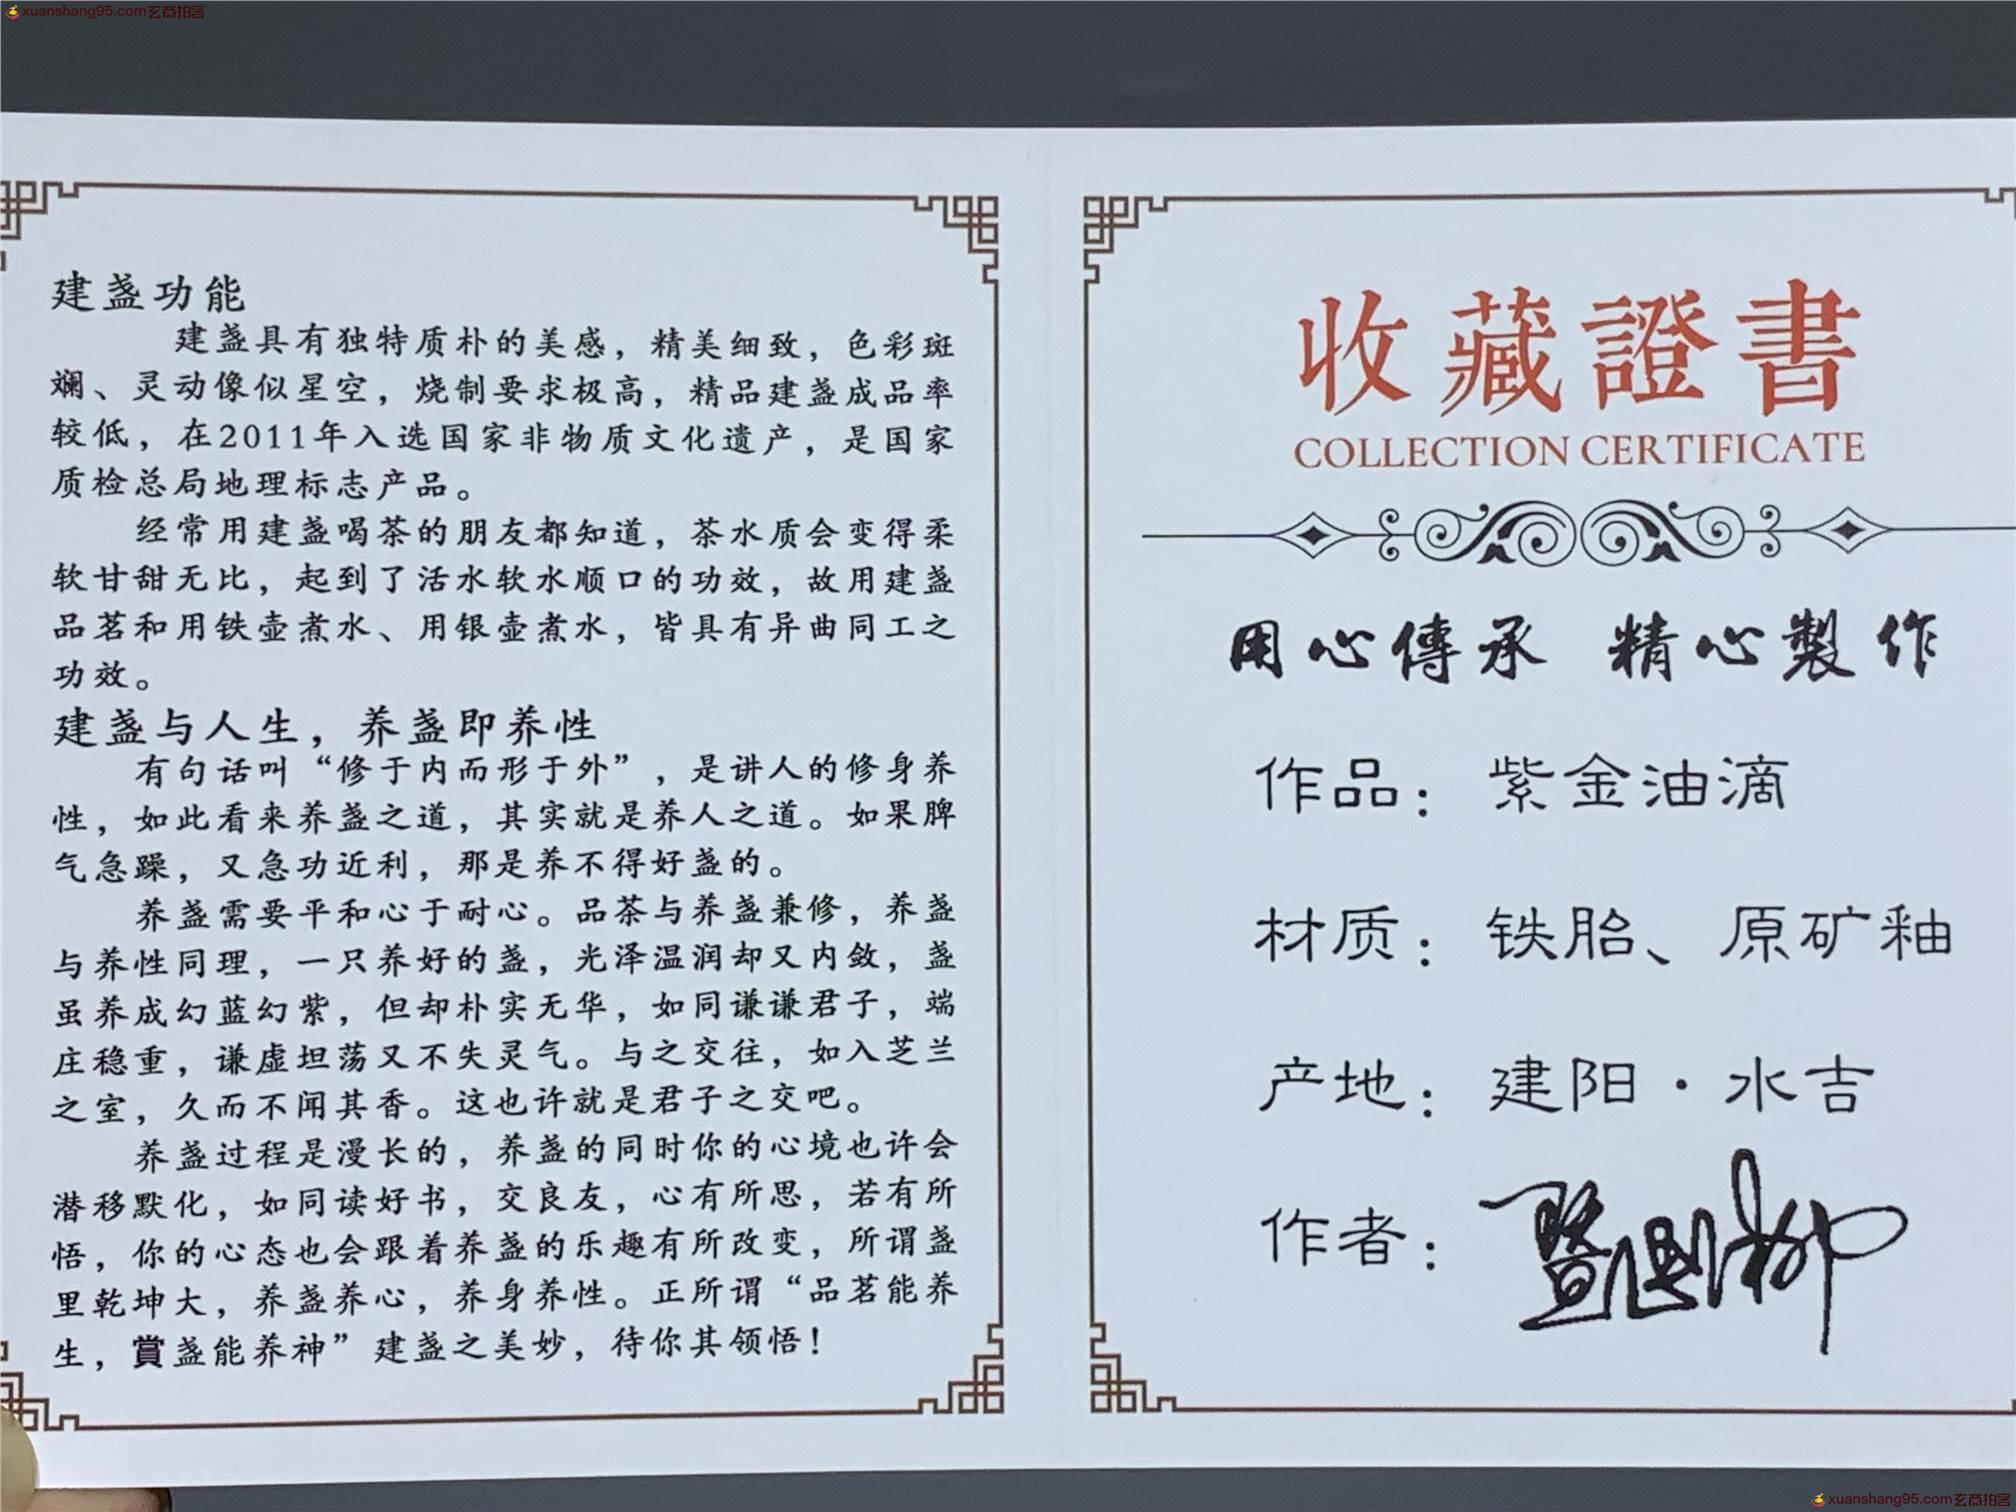 xuanshang95.com玄商拍客
建盏功能
建盏具有独特质朴的美感，精美细致，色彩斑
斓、灵动像似星空，烧制要求极高，精品建盏成品率
较低，在2011年入选国家非物质文化遗产，是国家
质检总局地理标志产品。
经常用建盏喝茶的朋友都知道，茶水质会变得柔
软甘甜无比，起到了活水软水顺口的功效，故用建盏
品茗和用铁壶煮水、用银壶煮水，皆具有异曲同工之
功效。
建盏与人生，养盏即养性
有句话叫“修于内而形于外”，是讲人的修身养
性，如此看来养盏之道，其实就是养人之道。如果脾
气急躁，又急功近利，那是养不得好盏的。
养盏需要平和心于耐心。品茶与养盏兼修，养盏
与养性同理，一只养好的盏，光泽温润却又内敛，盏
虽养成幻蓝幻紫，但却朴实无华，如同谦谦君子，端
庄稳重，谦虚坦荡又不失灵气。与之交往，如入芝兰
之室，久而不闻其香。这也许就是君子之交吧。
养盏过程是漫长的，养盏的同时你的心境也许会
潜移默化，如同读好书，交良友，心有所思，若有所
悟，你的心态也会跟着养盏的乐趣有所改变，所谓盏
里乾坤大，养盏养心，养身养性。正所谓“品茗能养
生，賞盏能养神”建盏之美妙，待你其领悟！
收藏證書
COLLECTION CERTIFICATE
用心傳承 精心製作
作品：紫金油滴
材质：铁胎、原矿釉
产地：建阳·水吉
作者：
xuanshang95.com玄商拍客